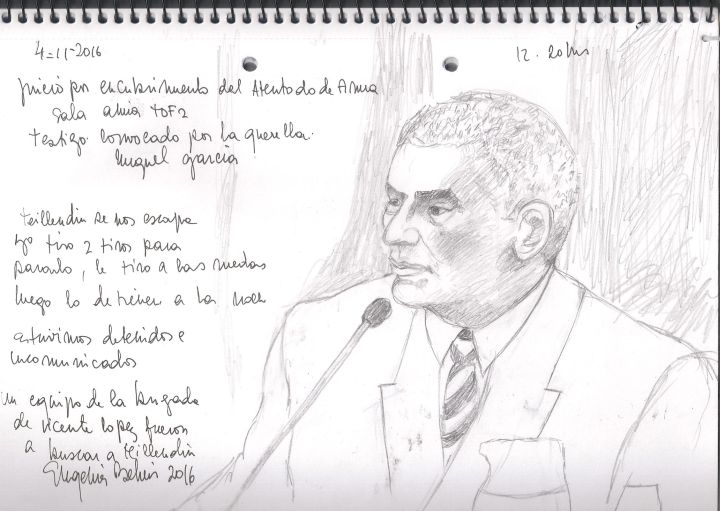 4-11-2016
12.20hs
Juicio por encubrimiento del Atentado de Amia
Sala amia TOF2
testigo convocado por la querella.
Miguel garcia
teilleldin se nos escapa
tiro 2 tiros para
pararlo, le tiro a las ruedas
luego lo detienen a la
estuvimos detenidos e
incomunicados
un equipo de la brigada
de vicente lopez fueron
a buscar a teilleldin
Eugenia Bekeris 2016